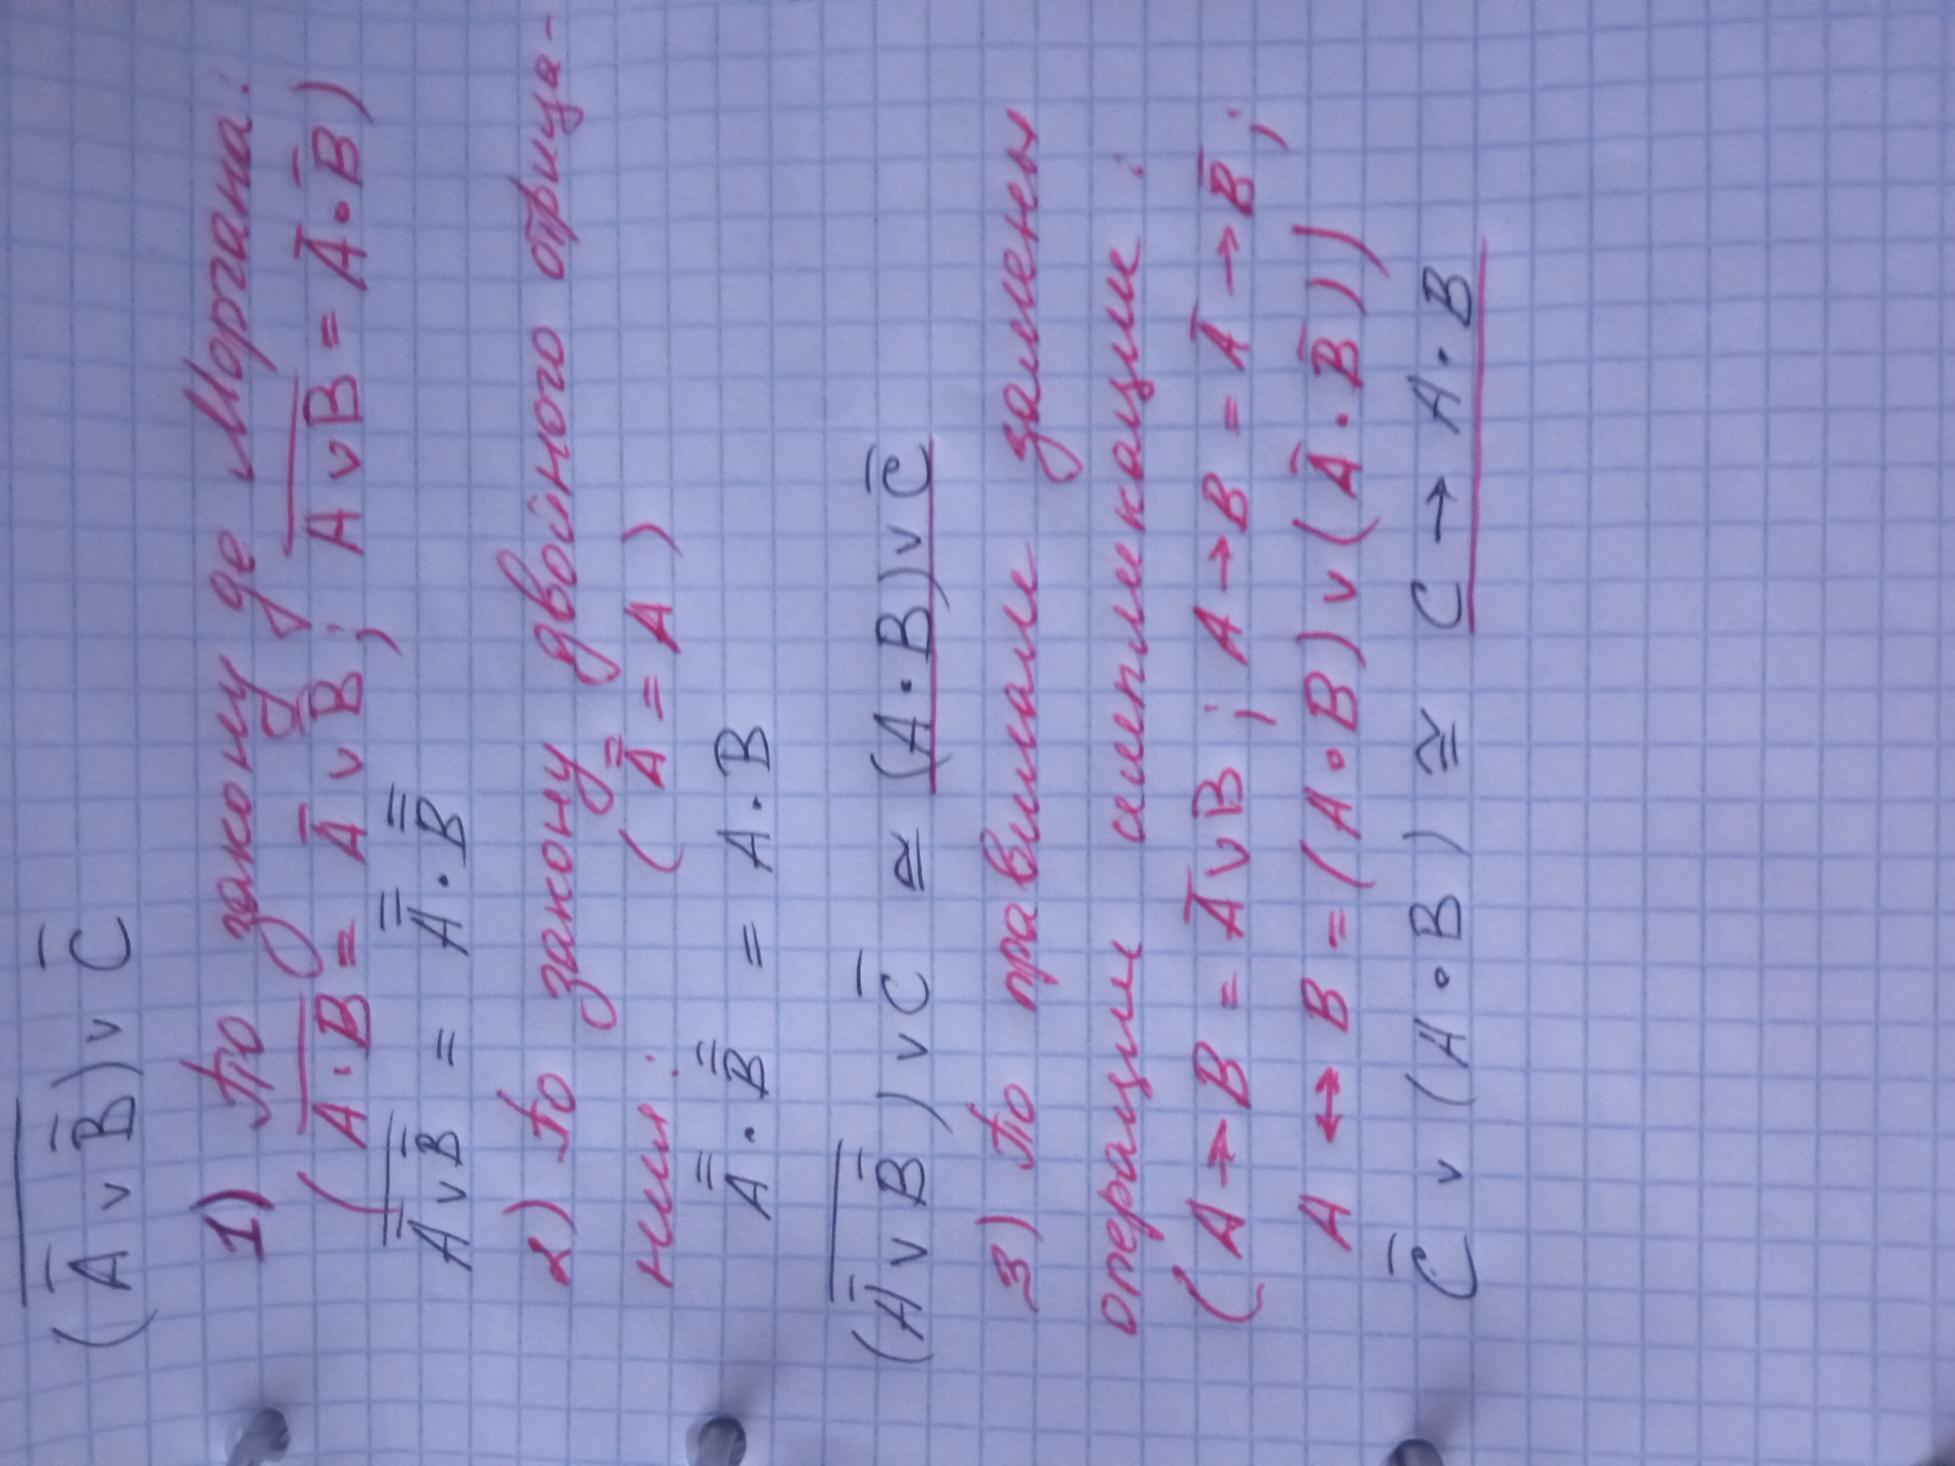 (A̅ ∨ B̅)̅ ∨ C̅
1) По закону де Моргана:
(A̅·̅B̅ = A̅ ∨ B̅; A̅ ̅∨̅ ̅B̅ = A̅·B̅)
A̿ ̅∨̅ B̿ = A̿ · B̿
2) По закону двойного отрица-
ния:
(A̿ = A)
A̿ · B̿ = A · B
(A̅ ∨ B̅)̅ ∨ C̅ ≅ (A · B) ∨ C̅
3) По правилам замены
операции импликации:
(A → B = A̅ ∨ B; A → B = A̅ → B̅;
A ↔ B = (A · B) ∨ (A̅ · B̅))
C̅ ∨ (A · B) ≅ C → A · B